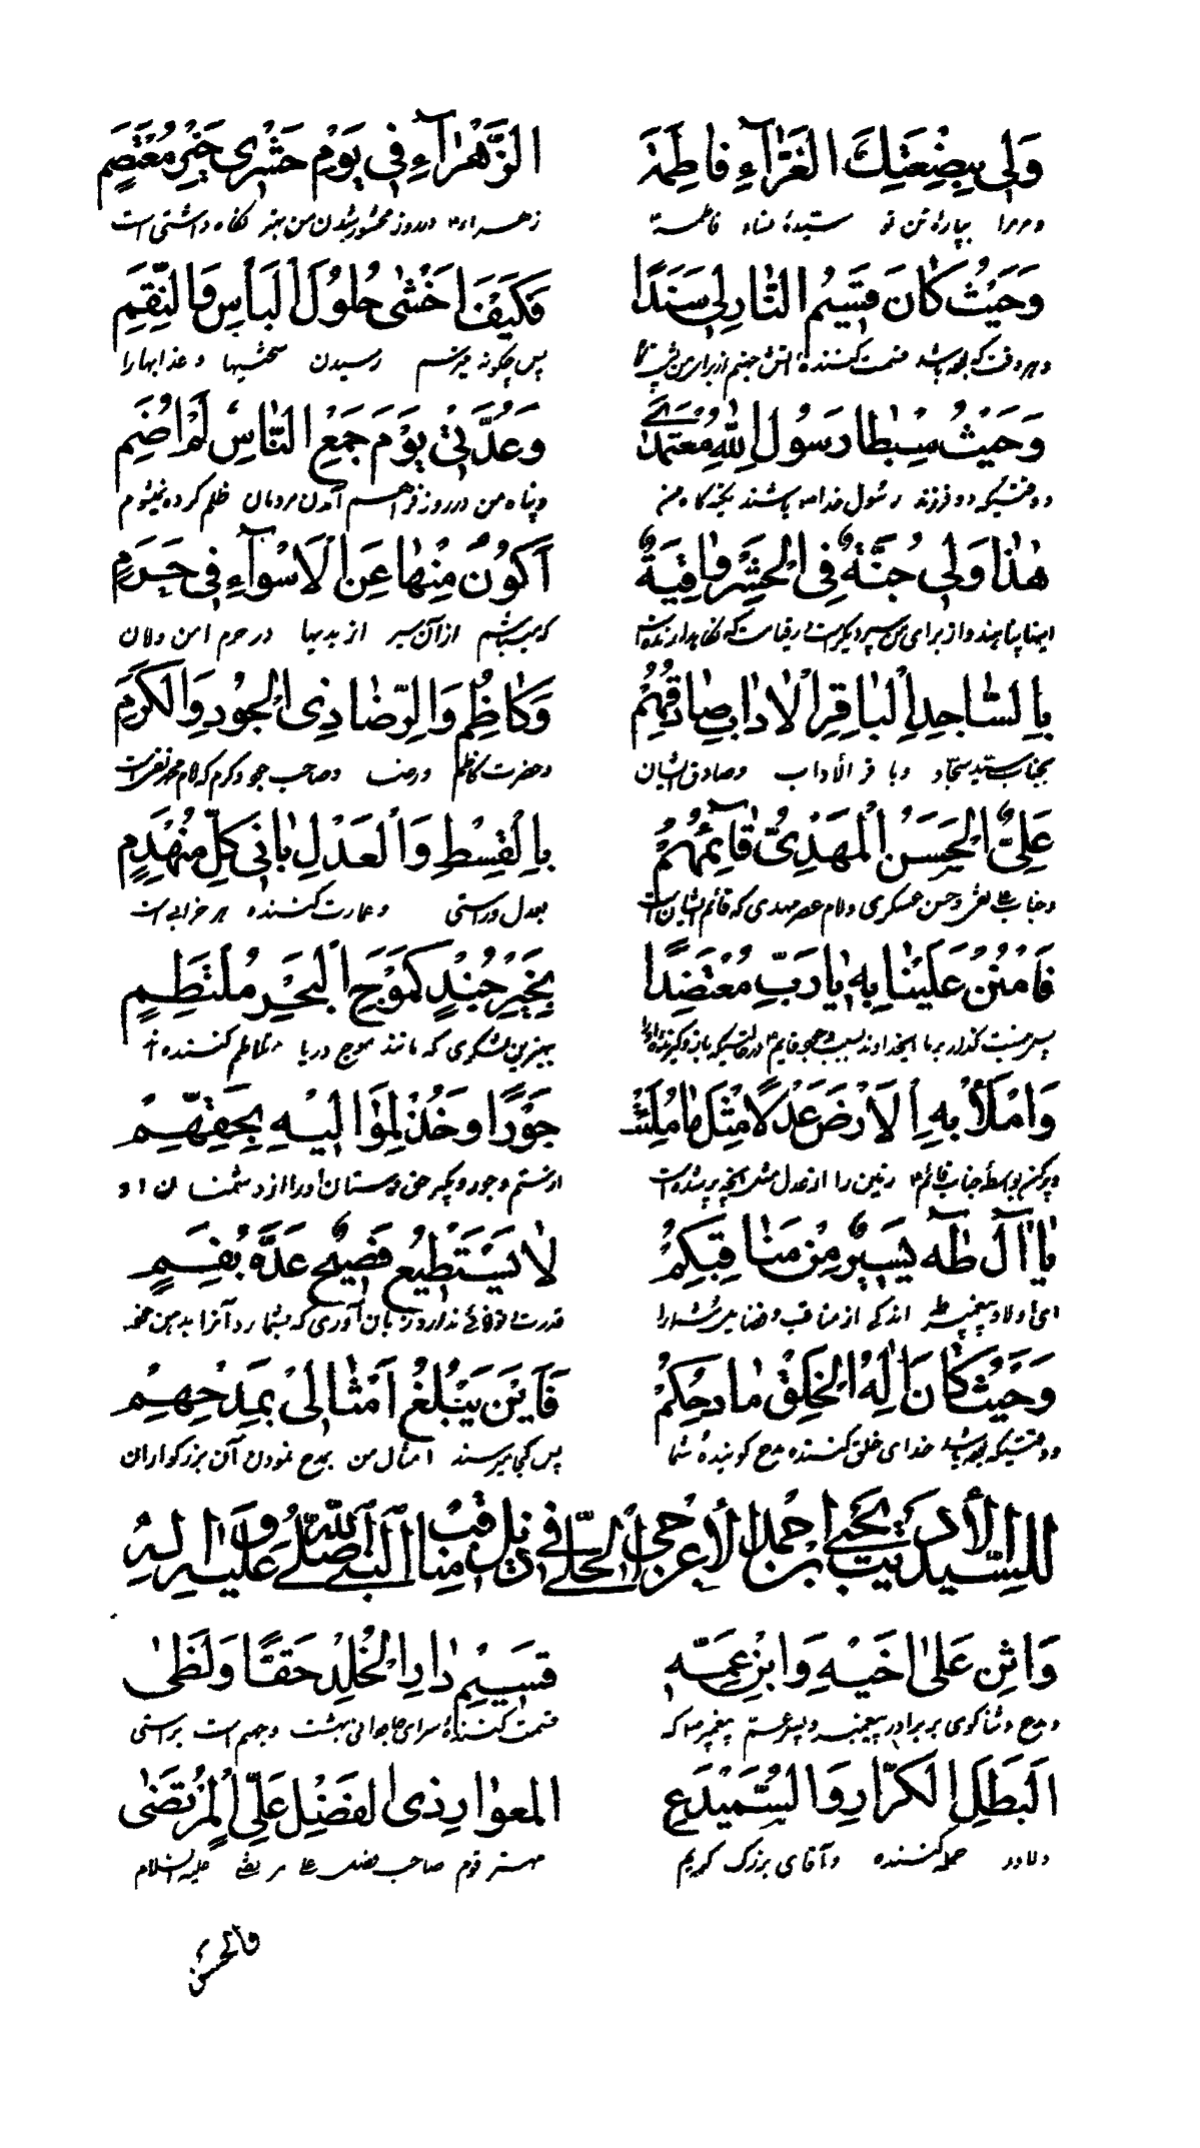 وَلِي بِبِضْعَتِكَ الْغَرَّآءِ فَاطِمَةَ الزَّهْرَآءِ فِي يَوْمِ حَشْرِي خَيْرُ مُعْتَصَمِ
ومرا بپارهٔ تن تو سیدهٔ نساء فاطمه زهراء در روز محشور شدن من بهتر نگاه داشتنی است
وَحَيْثُ كَانَ قَسِيمُ النَّارِ لِي سَنَدًا فَكَيْفَ اَخْشٰى حُلُولَ الْبَأْسِ وَالنِّقَمِ
وهر وقت که بوده باشد قسمت کننده آتش جهنم از برای من پس چگونه میترسم رسیدن سختیها و عذابها را
وَحَيْثُ سِبْطَا رَسُولِ اللّٰهِ مُعْتَمَدِي وَعُدَّتِي يَوْمَ جَمْعِ النَّاسِ لَمْ اُضَمِ
و وقتیکه دو فرزند رسول خدا باشند تکیه گاه من و پناه من در روز فراهم آمدن مردمان ظلم کرده نمیشوم
هٰذَا وَلِي جُنَّةٌ فِي الْحَشْرِ وَاقِيَةٌ اَكُونُ مِنْهَا عَنِ الْاَسْوَآءِ فِي حَرَمِ
اینها پناهند و از برای من سپر دیگر است در قیامت که نگاهدارنده است که میباشم از آن سپر از بدیها در حرم امن و امان
بِالسَّاجِدِ الْبَاقِرِ الْاٰدَابِ صَادِقِهُمْ وَكَاظِمٍ وَالرِّضَا ذِى الْجُودِ وَالْكَرَمِ
بجناب سید سجاد و باقر الآداب و صادق ایشان و حضرت کاظم و رضا و صاحب جود و کرم که امام محمد تقی است
عَلِيٌّ الْحَسَنُ الْمَهْدِيُّ قَآئِمُهُمْ بِالْقِسْطِ وَالْعَدْلِ بَانِي كُلِّ مُنْهَدِمِ
وجناب علی نقی و حسن عسکری و امام عصر مهدی که قائم ایشان است بعدل و راستی و عمارت کننده هر خرابی است
فَامْنُنْ عَلَيْنَا بِهِ يَا رَبِّ مُعْتَضِدًا بِخَيْرِ جُنْدٍ كَمَوْجِ الْبَحْرِ مُلْتَطِمِ
پس منت گذار بر ما ایخداوند بسبب وجود قایم در حالتیکه بهترین لشکری که مانند موج دریا تلاطم کننده
وَامْلَأْ بِهِ الْاَرْضَ عَدْلًا مِثْلَ مَا مُلِئَتْ جَوْرًا وَخُذْ لِمَوَالِيهِ بِحَقِّهِمْ
و پر کن بواسطه جناب قائم زمین را از عدل مثل آنچه پر شده است از ستم و جور و بگیر حق دوستان او را از دشمنان او
يَا اٰلَ طٰهٰ يَسِيرٌ مِنْ مَنَاقِبِكُمْ لَا يَسْتَطِيعُ فَصِيحٌ عَدَّهُ بِفَمِ
ای اولاد پیغمبر اندکی از مناقب و فضایل شما را قدرت و توانائی ندارد زبان آوری که بشمارد آنرا بدهن خود
وَحَيْثُ كَانَ اِلٰهُ الْخَلْقِ مَادِحَكُمْ فَاَيْنَ يَبْلُغُ اَمْثَالِى بِمَدْحِهِمْ
و وقتیکه بوده باشد خدای خلق کننده مدح گوینده شما پس کی میرسند امثال من بمدح نمودن آن بزرگواران
للسيد الأديب يحيى بن احمد الأعرجي الحلي في ذيل مناقب النبي صلى الله عليه وآله
وَاثْنِ عَلٰى اَخِيهِ وَابْنِ عَمِّهِ قَسِيمِ دَارِ الْخُلْدِ حَقًّا وَلَظٰى
ومدح و ثنا گوی بر برادر پیغمبر و پسر عم پیغمبر که قسمت کننده سرای جاودانی بهشت و جهنم است براستی
اَلْبَطَلِ الْكَرَّارِ وَالسَّمَيْدَعِ الْمِغْوَارِ ذِى الْفَضْلِ عَلِيِّ الْمُرْتَضٰى
دلاور حمله کننده و آقای بزرگ کریم مهتر قوم صاحب فضل علی مرتضی علیه السلام